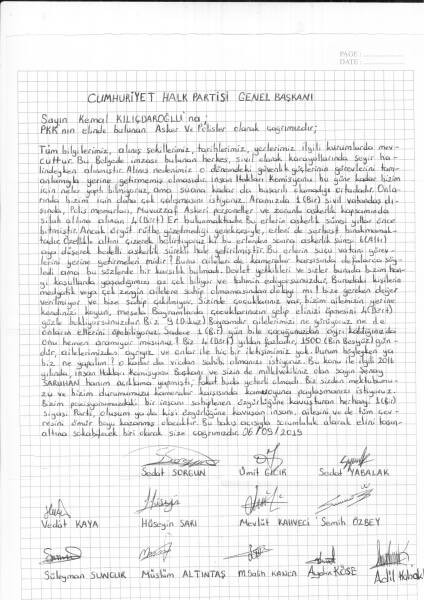 PAGE :
DATE :
CUMHURİYET HALK PARTİSİ GENEL BAŞKANI
Sayın Kemal KILIÇDAROĞLU'na;
PKK'nın elinde bulunan Asker Ve Polisler olarak çağrımızdır;
Tüm bilgilerimiz, alınış şekillerimiz, tarihlerimiz, yerlerimiz ilgili kurumlarda mev-
cuttur. Bu Belgede imzası bulunan herkes, sivil olarak karayollarında seyir ha-
lindeyken alınmıştır. Alınış nedenimiz o dönemdeki güvenlik güçlerinin görevlerini tam
anlamıyla yerine getirememiş olmasıdır. İnsan Hakları Komisyonu bu güne kadar bizim
için neler yaptı bilmiyoruz, ama şuana kadar da başarılı olamadığı ortadadır. Onla-
rında bizim için daha çok çalışmasını istiyoruz. Aramızda 1(Bir) sivil vatandaş dı-
şında, Polis memurları, Muvazzaf Askeri personeller ve zorunlu askerlik kapsamında
silah altına alınan 4(Dört) Er bulunmaktadır. Bu erlerin askerlik süresi yıllar önce
bitmiştir. Ancak örgüt rütbe gözetmediği gerekçesiyle, erleri de serbest bırakmamak-
tadır. Özellikle altını çizerek belirtiyoruz ki bu erlerden sonra askerlik süresi 6(Altı)
aya düşerek bedelli askerlik sürekli hale getirilmiştir. Bu erlerin suçu vatani görev-
lerini yerine getirmeleri midir? Bunu aileleri de kameralar karşısında defalarca söy-
ledi ama bu sözlerde bir karşılık bulmadı. Devlet yetkilileri ve sizler burada bizim han-
gi koşullarda yaşadığımızı az çok biliyor ve tahmin ediyorsunuzdur. Buradaki kişilerin
medyatik veya çok zengin ailelere sahip olmamasından dolayı mı bize gereken değer
verilmiyor ve bize sahip çıkılmıyor. Sizinde çocuklarınız var, bizim ailemizin yerine
kendinizi koyun, mesela Bayramlarda çocuklarınızın gelip elinizi öpmesini 4(Dört)
gözle bekliyorsunuzdur. Biz 9(Dokuz) Bayramdır ailelerimizi ne görüyoruz ne de
onların ellerini öpebiliyoruz. Sadece 1(Bir) gün bile çocuğunuzdan ayrı kaldığınızda
onu hemen aramıyor musunuz? Biz 4(Dört) yıldan fazladır, 1500 (Bin Beşyüz) gün-
dür, ailelerimizden ayrıyız ve onlar ile hiç bir iletişimimiz yok. Durum böyleyken ya
biz ne yapalım? o kadar da vicdan sahibi olmanızı istiyoruz. Bu konu ile ilgili 2014
yılında, insan Hakları Komisyonu Başkanı ve sizin de milletvekiliniz olan sayın Şenay
SARUHAN hanım açıklama yapmıştı, fakat buda yeterli olmadı. Biz sizden mektubumu-
zu ve bizim durumumuzu kameralar karşısında kamuoyuna paylaşmanızı istiyoruz.
Bizim pozisyonumuzdaki bir insanı sahiplenen özgürlüğüne kavuşturan herhangi 1(Bir)
siyasi Parti, oluşum ya da kişi özgürlüğüne kavuşan insanı, ailesini ve de tüm çev-
resini ömür boyu kazanmış olacaktır. Bu bakış açısıyla sorumluluk alarak elini taşın-
altına sokabilecek biri olarak size çağrımızdır. 06/09/2019
Sedat SORGUN Ümit GICIR Sedat YABALAK
Vedat KAYA Hüseyin SARI Mevlüt KAHVECİ Semih ÖZBEY
Süleyman SUNGUR Müslüm ALTINTAŞ M.Salih KANCA Aydın KÖSE Adil